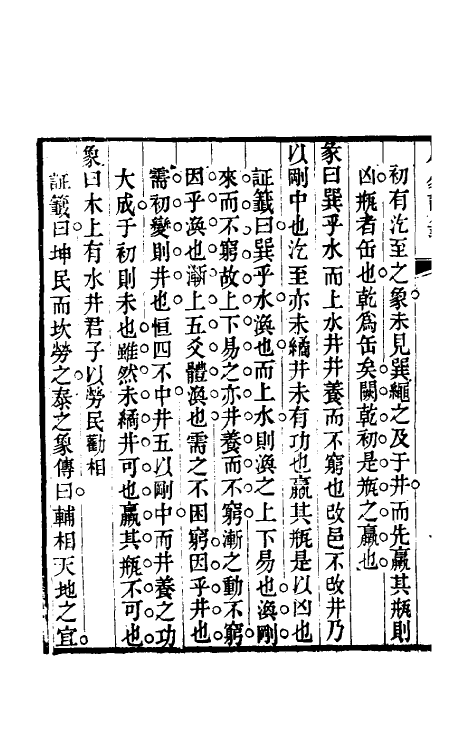 初有汔至之象未見巽繩之及于井而先羸其瓶則
凶瓶者缶也乾爲缶矣闕乾初是瓶之羸也
彖曰巽乎水而上水井井養而不窮也改邑不改井乃
以剛中也汔至亦未繘井未有功也羸其瓶是以凶也
証籖曰巽乎水渙也而上水則渙之上下易也渙剛
來而不窮故上下易之亦井養而不窮漸之動不窮
因乎渙也漸上五爻體渙也需之不困窮因乎井也
需初變則井也恒四不中井五以剛中而井養之功
大成于初則未也雖然未繘井可也羸其瓶不可也
象曰木上有水井君子以勞民勸相
証籖曰坤民而坎勞之泰之象傳曰輔相天地之宜